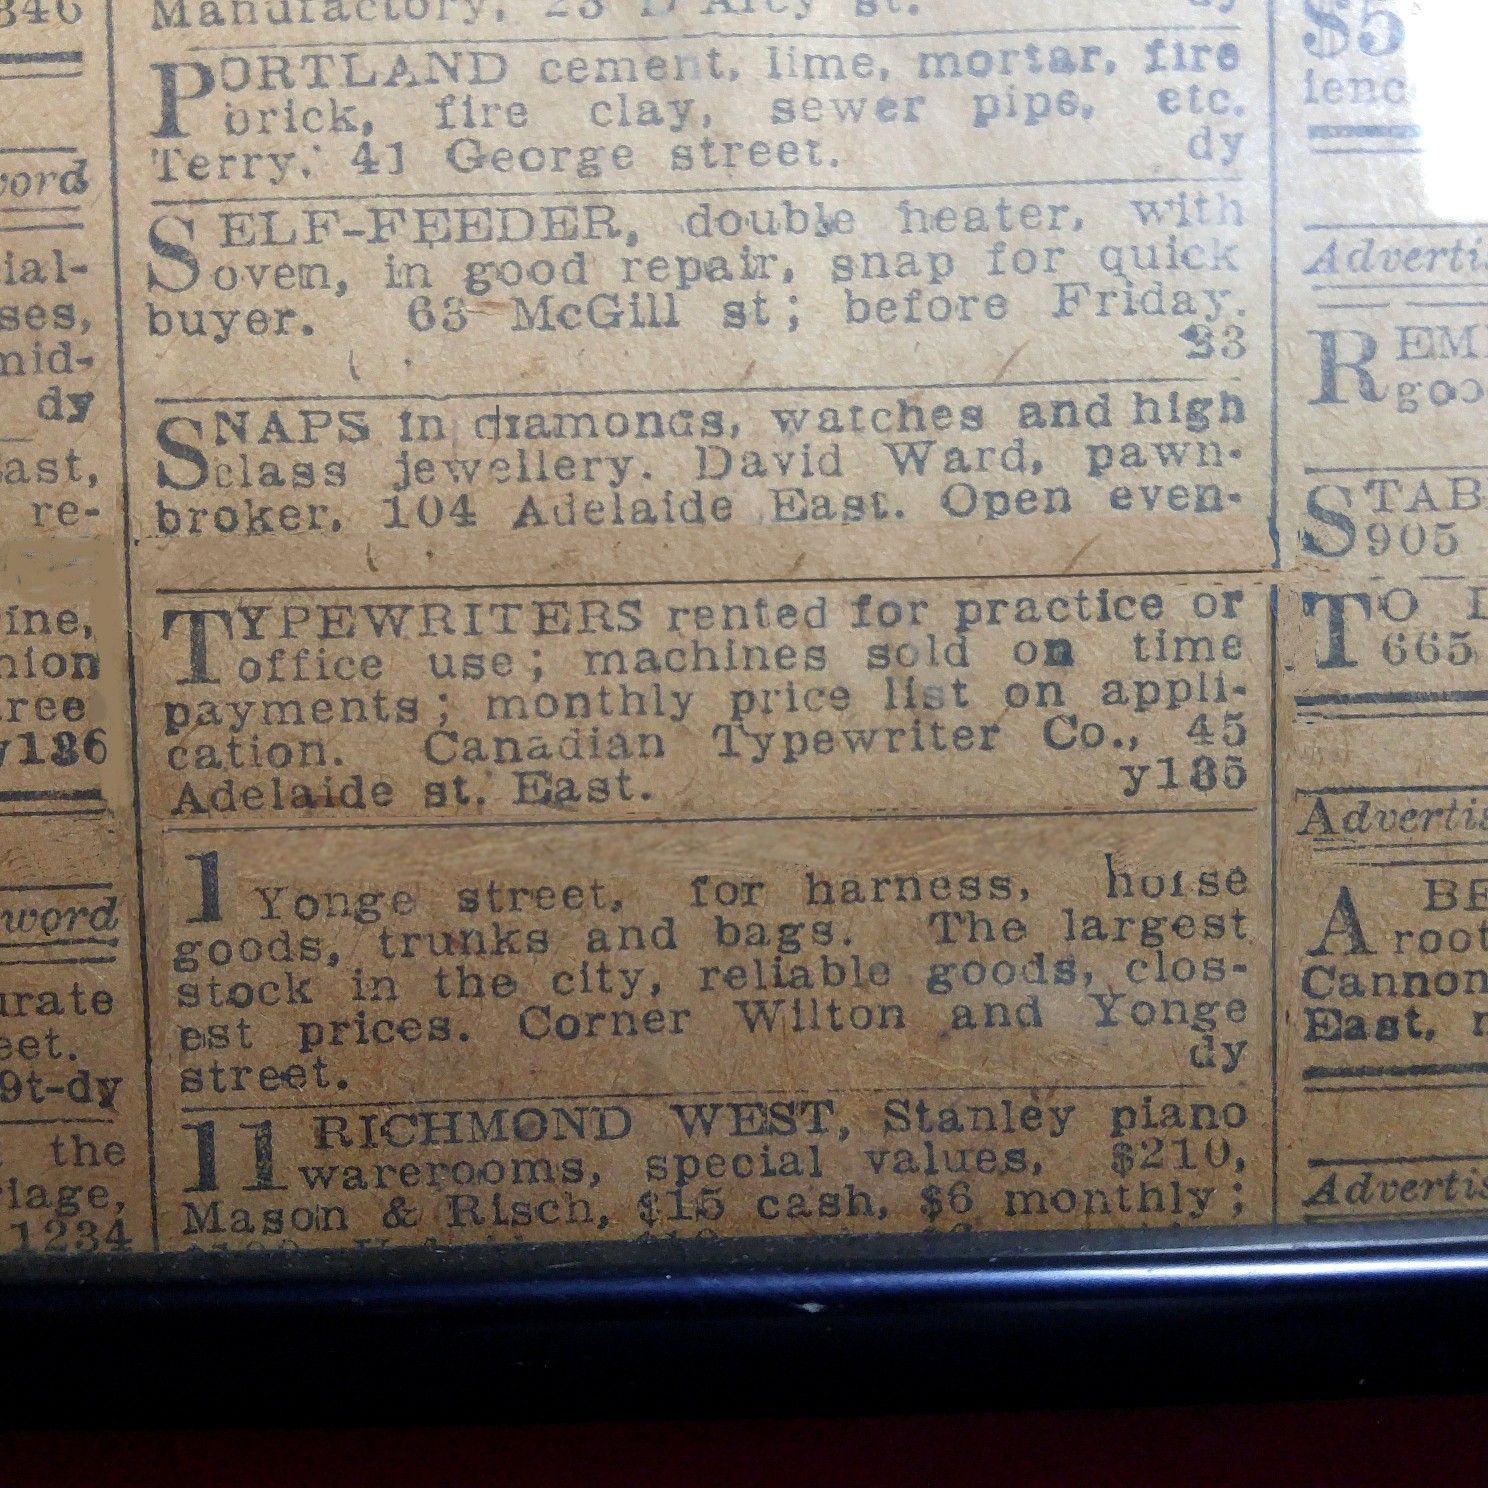 Manufactory, 23 D'Arcy st. dy
PORTLAND cement, lime, mortar, fire
brick, fire clay, sewer pipe, etc.
Terry, 41 George street. dy
SELF-FEEDER, double heater, with
oven, in good repair, snap for quick
buyer. 63 McGill st; before Friday.
23
SNAPS in diamonds, watches and high
class jewellery. David Ward, pawn-
broker, 104 Adelaide East. Open even-
TYPEWRITERS rented for practice or
office use; machines sold on time
payments; monthly price list on appli-
cation. Canadian Typewriter Co., 45
Adelaide st. East. y135
1 Yonge street, for harness, horse
goods, trunks and bags. The largest
stock in the city, reliable goods, clos-
est prices. Corner Wilton and Yonge
street. dy
11 RICHMOND WEST, Stanley piano
warerooms, special values, $210,
Mason & Risch, $15 cash, $6 monthly;
346
word
ial-
ses,
mid-
dy
ast,
re-
ine,
nion
ree
y136
word
urate
eet.
9t-dy
the
riage,
1234
$5
ienc
Adverti
REM
goo
STAB
905
TO
665
Advertis
A BE
root
Cannon
East,
Advertis